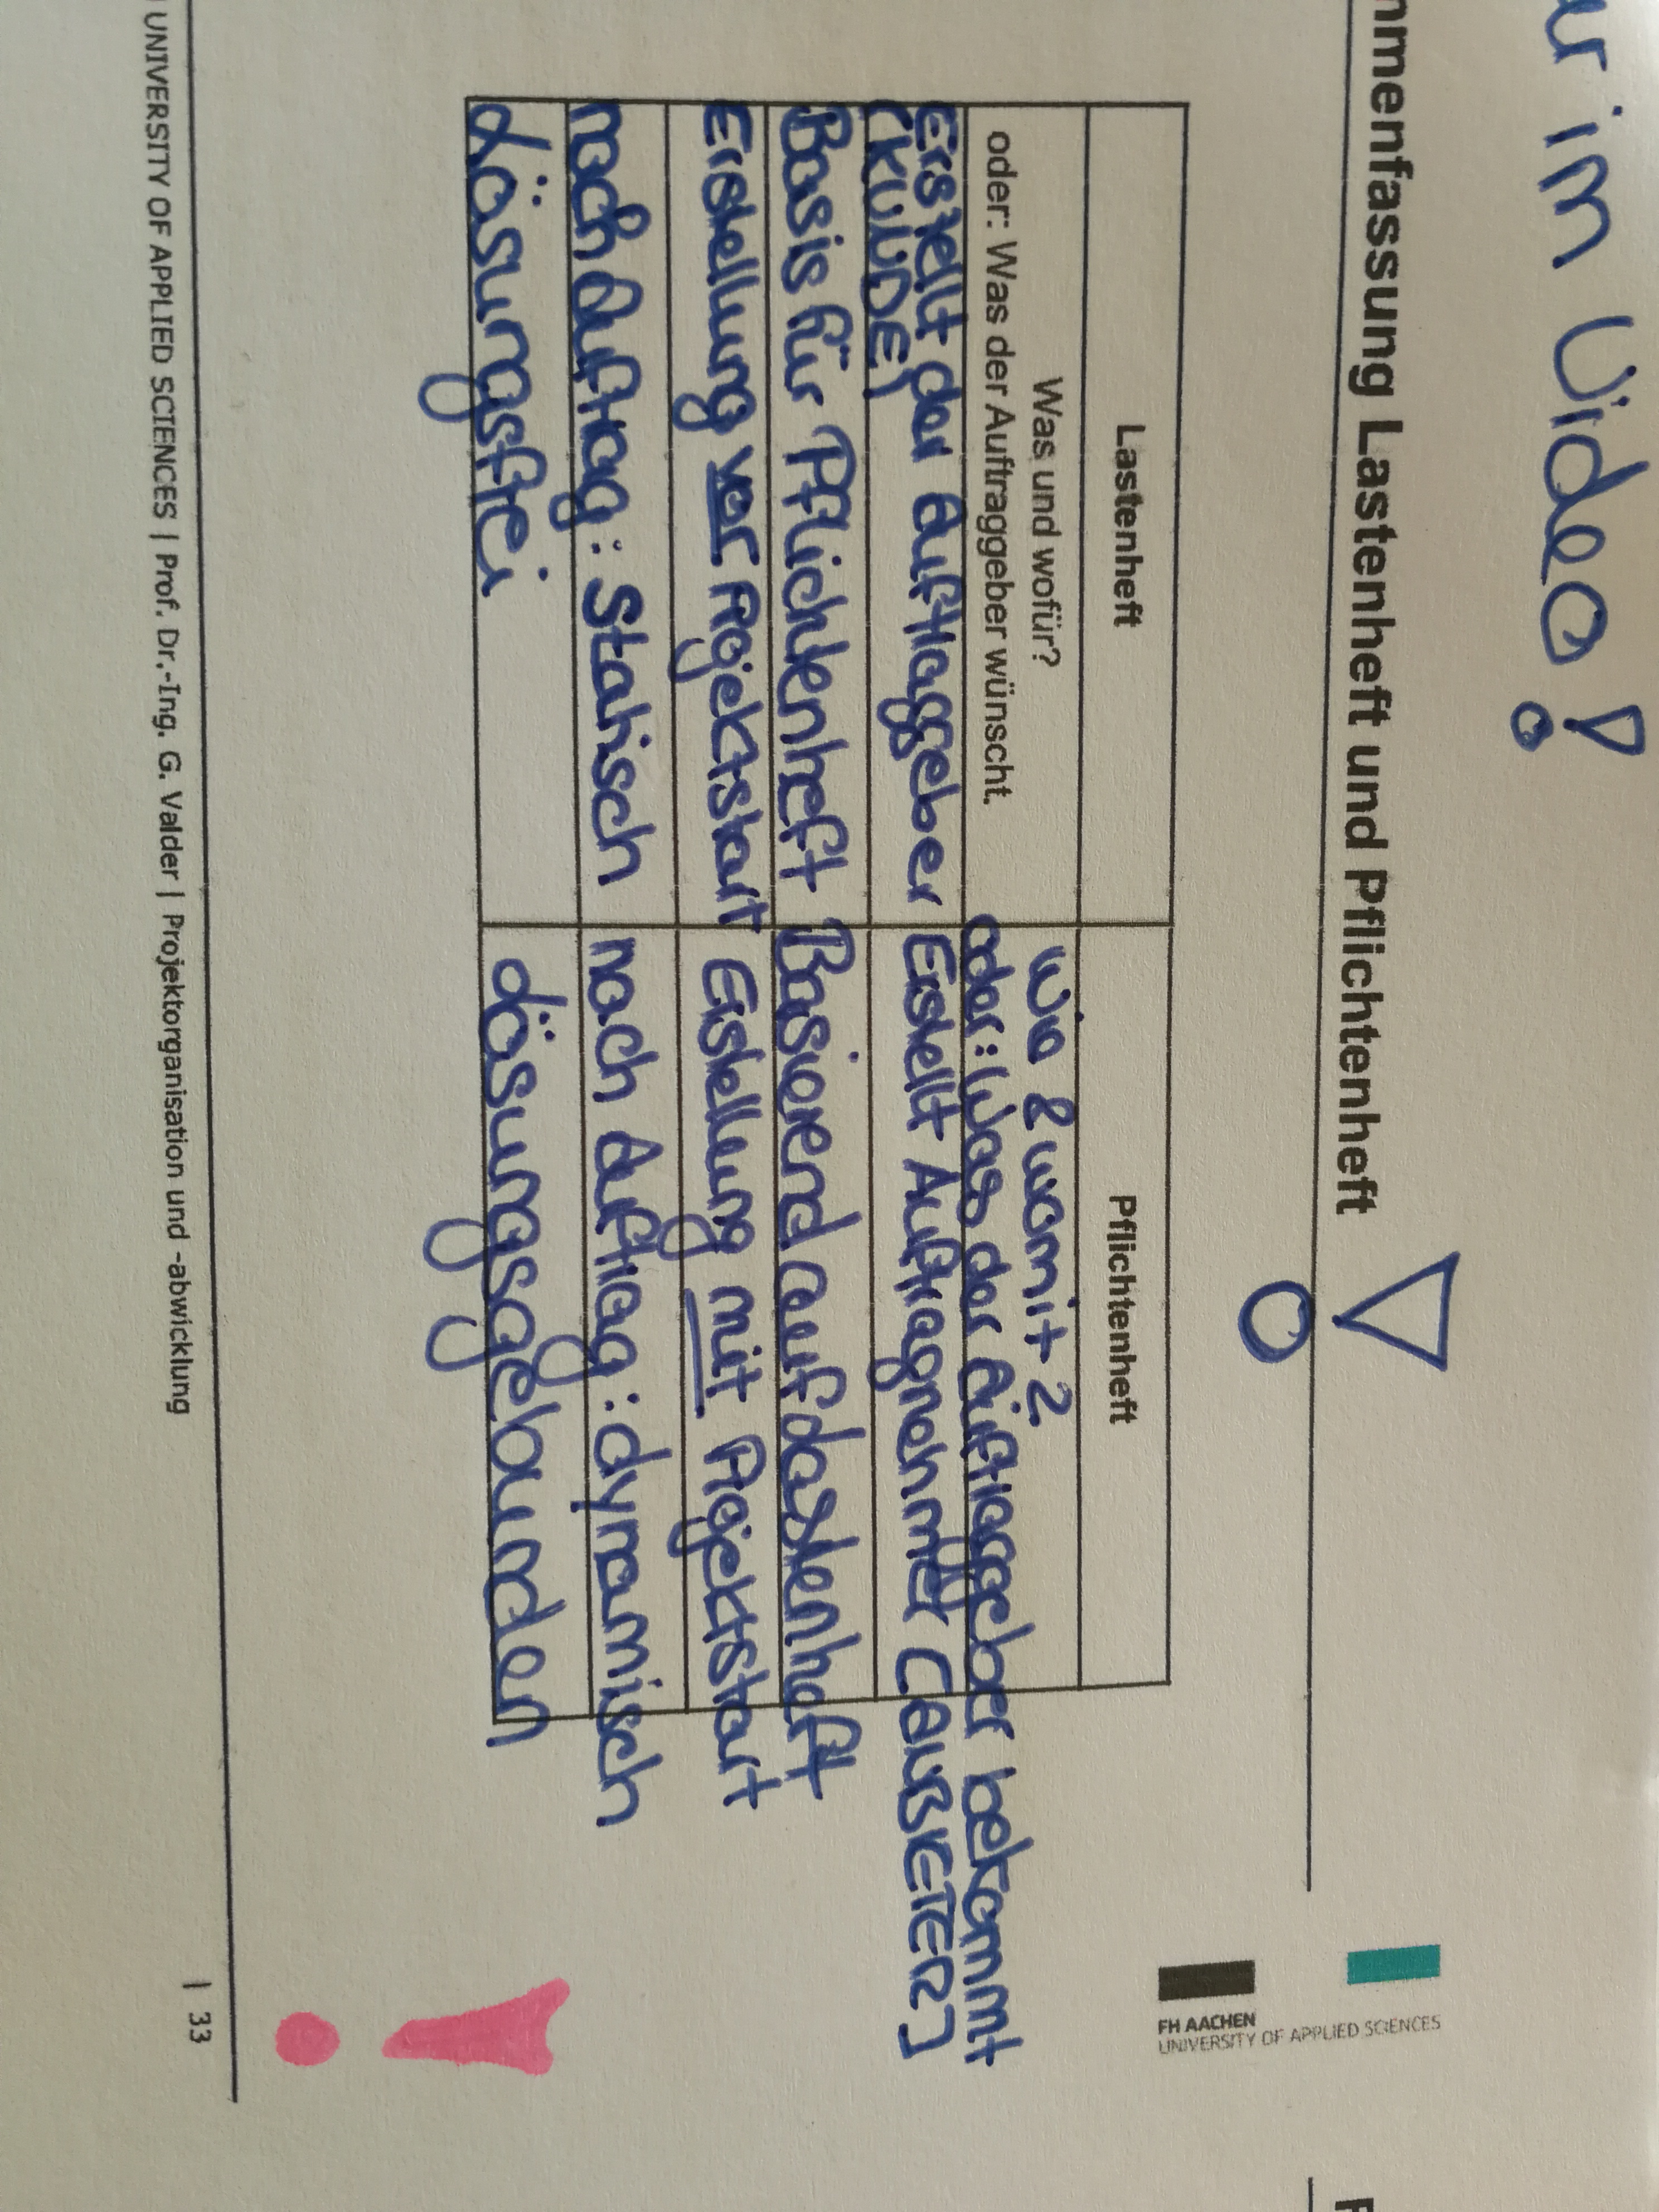 ur im Video!
nmenfassung Lastenheft und Pflichtenheft
FH AACHEN
UNIVERSITY OF APPLIED SCIENCES
Lastenheft
Pflichtenheft
Was und wofür?
oder: Was der Auftraggeber wünscht.
Wie & womit?
oder: Was der Auftraggeber bekommt
Erstellt der Auftraggeber
(KUNDE)
Erstellt Auftragnehmer (ANBIETER)
Basis für Pflichtenheft
Basierend auf Lastenheft
Erstellung vor Projektstart
Erstellung mit Projektstart
nach Auftrag: Statisch
nach Auftrag: dynamisch
Lösungsfrei
Lösungsgebunden
UNIVERSITY OF APPLIED SCIENCES | Prof. Dr.-Ing. G. Valder | Projektorganisation und -abwicklung
| 33